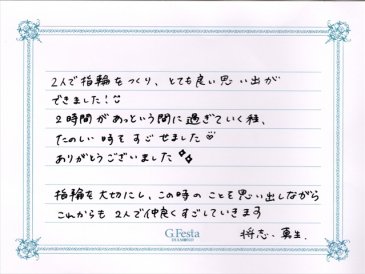 2人で指輪をつくり、とても良い思い出が
できました!
2時間があっという間に過ぎていく程、
たのしい時をすごせました♡
ありがとうございました
指輪を大切にし、この時のことを思い出しながら
これからも2人で仲良くすごしていきます
G.Festa
DIAMOND
将志、真生.